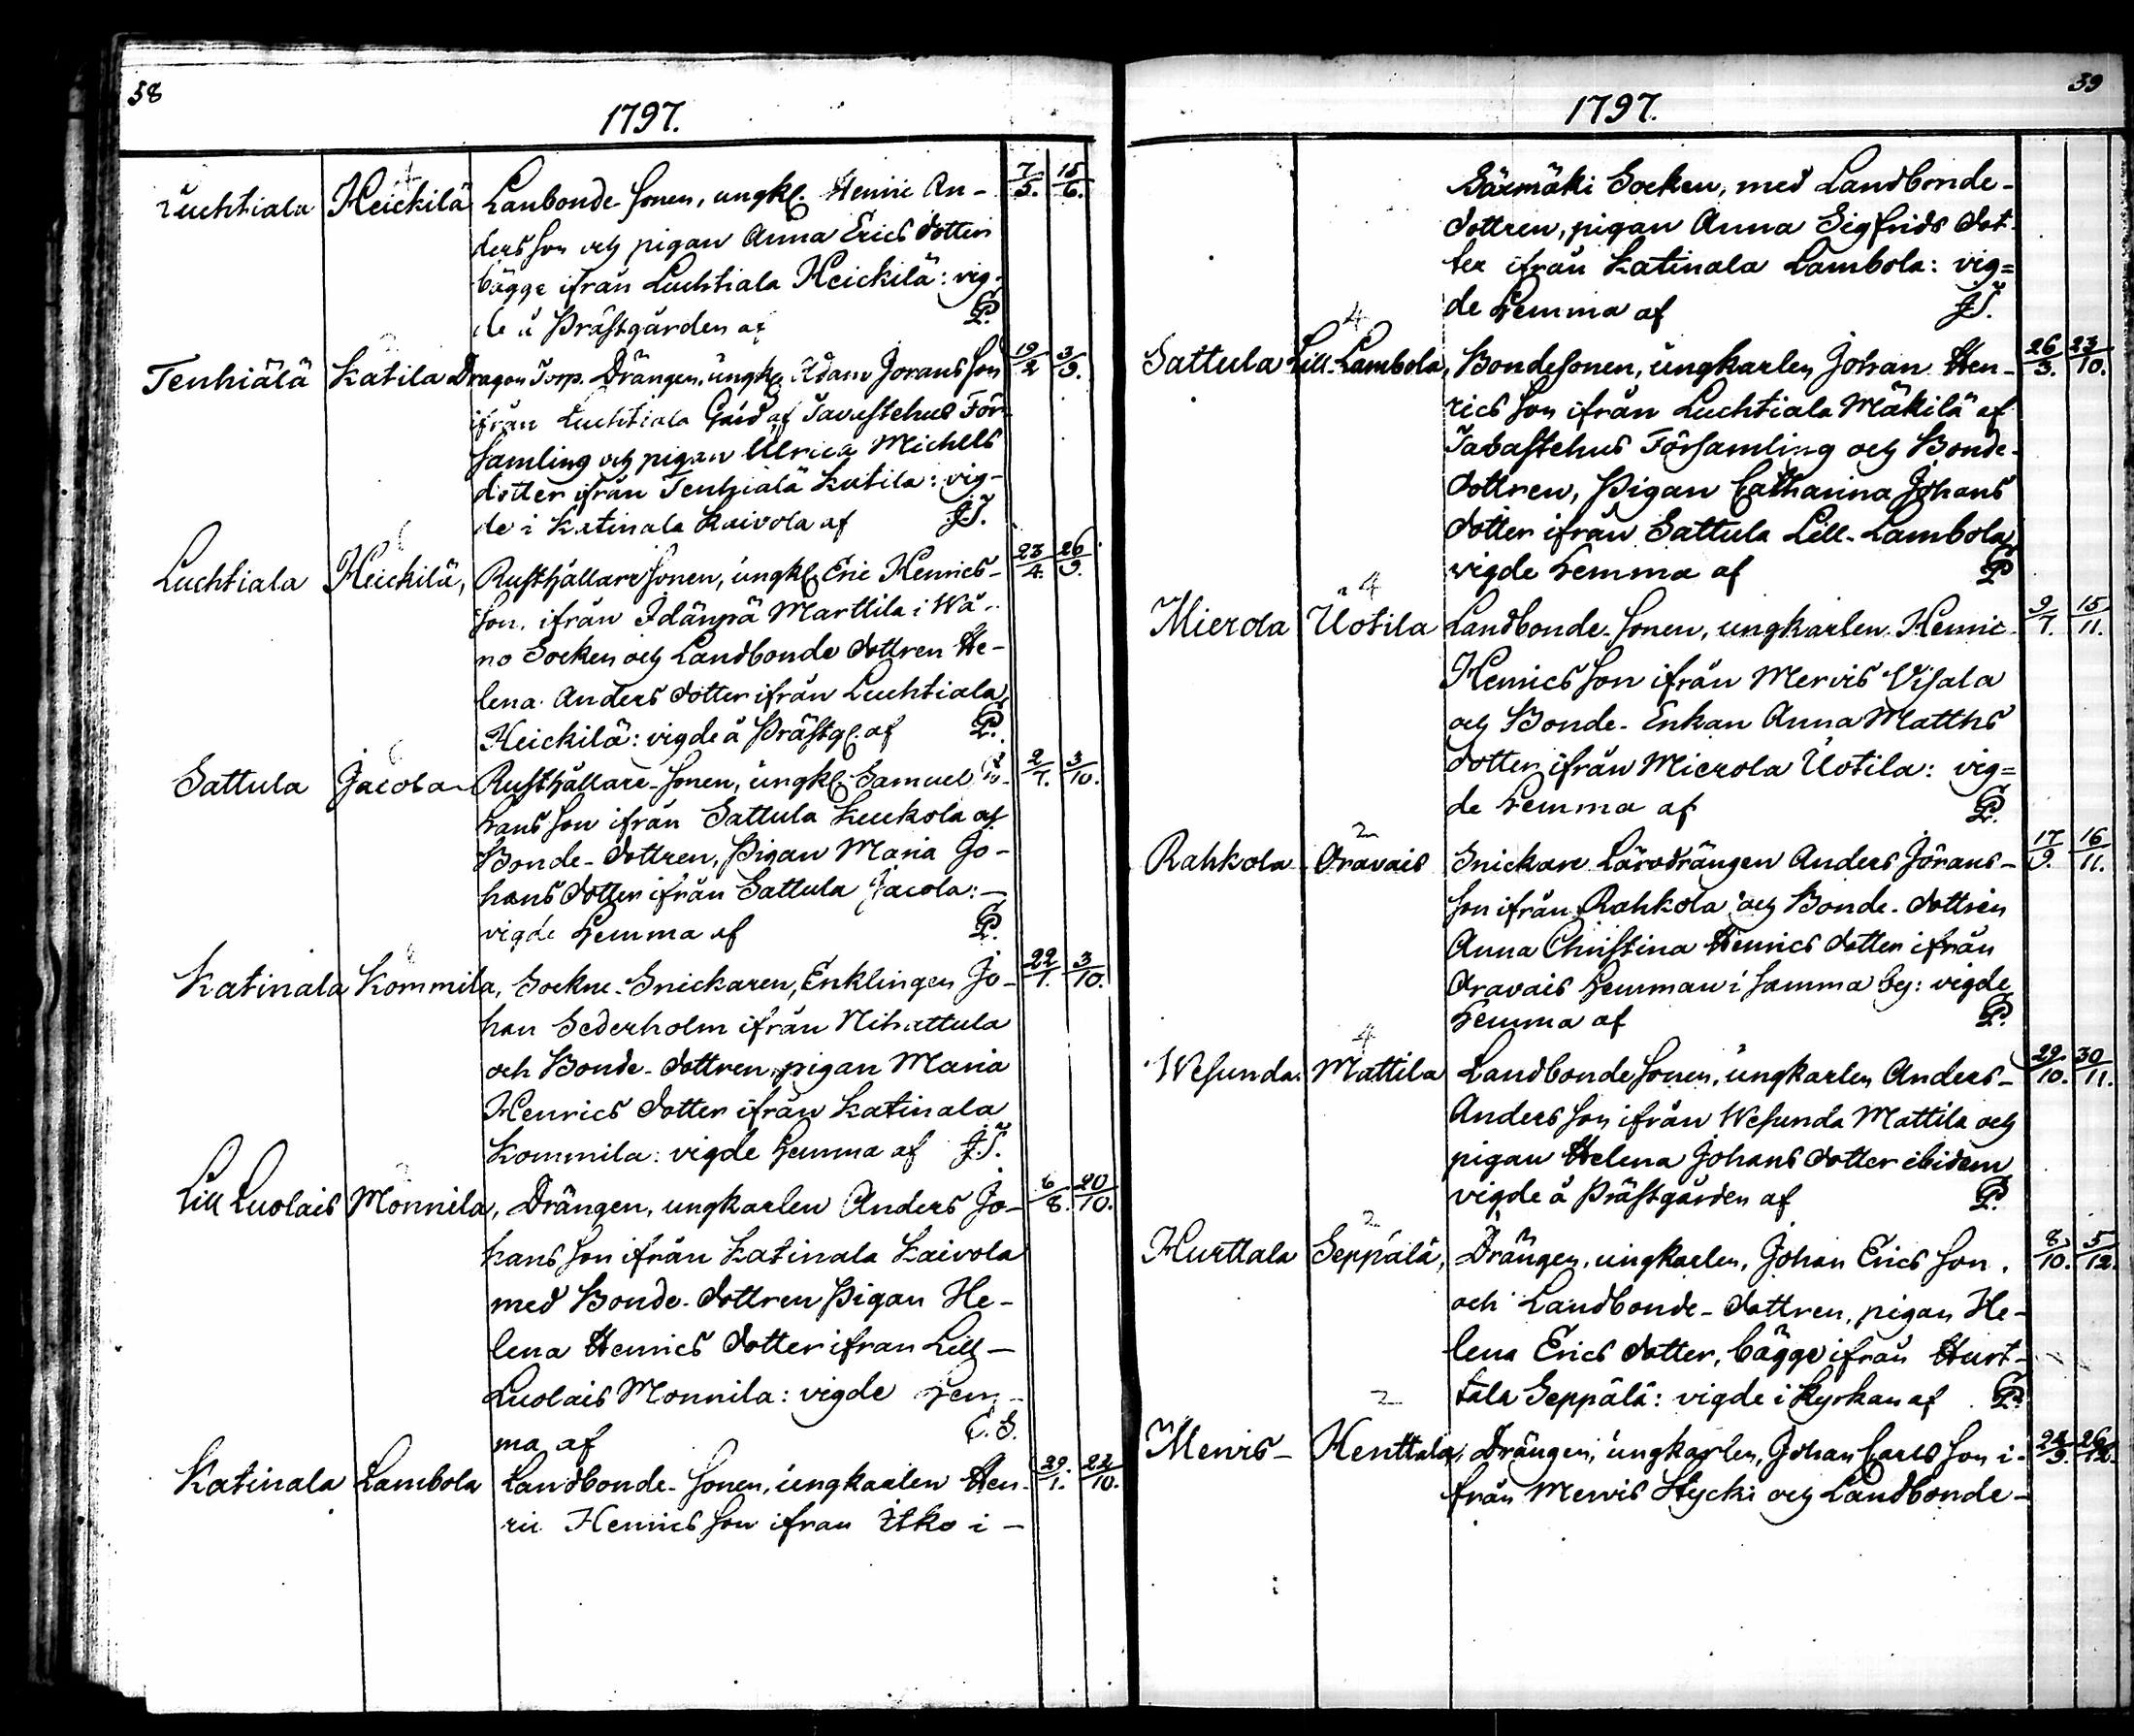 58
1797.
Luchtiala Heickilä Lanbonde sonen, ungkl. Henric An- 7/5. 15/6.
ders son och pigan Anna Erics dotter
bägge ifrån Luchtiala Heickilä: vig-
de å Prästgården af P.
Tenhiälä Katila Dragon Torp. Drängen, ungkl. Adam Jorans son 19/2 3/9.
ifrån Luchtiala Gård af Tavastehus För-
samling och pigan Ulrica Michels
dotter ifrån Tenhiälä Katila: vig-
de i Katinala Kaivola af J.T.
Luchtiala Heickilä, Rusthållare sonen, ungkl. Eric Henrics- 23/4. 26/9.
son, ifrån Idänpä Marttila i Wå-
no Socken och Landbonde dottren He-
lena Anders dotter ifrån Luchtiala
Heickilä: vigde å Prästg. af P.
Sattula Jacola Rusthållare-sonen, ungkl. Samuel Jo- 2/7. 3/10.
hans son ifrån Sattula Kuckola och
Bonde-dottren, Pigan Maria Jo-
hans dotter ifrån Sattula Jacola:-
vigde hemma af P.
Katinala Kommila, Sockne-Snickaren, Enklingen Jo- 22/1. 3/10.
han Sederholm ifrån Nihattula
och Bonde-dottren, pigan Maria
Henrics dotter ifrån Katinala
Kommila: vigde hemma af J.T.
Lill Luolais Monnila, Drängen, ungkarlen Anders Jo- 6/8. 20/10.
hans son ifrån Katinala Kaivola
med Bonde-dottren Pigan He-
lena Henrics dotter ifran Lill-
Luolais Monnila: vigde hem-
ma af C.S.
Katinala Lambola Landbonde-sonen, ungkarlen Hen- 29/1. 22/10.
ric Henrics son ifran Itko i-
39
1797.
Särmäki Socken, med Landbonde-
dottren, pigan Anna Sigfrids dot-
ter ifrån Katinala Lambola: vig=
de hemma af J.T.
4
Sattula Lill-Lambola, Bondesonen, ungkarlen Johan Hen- 26/3. 23/10.
rics son ifrån Luchtiala Mäkilä af
Tavastehus Församling och Bonde-
dottren, Pigan Catharina Johans
dotter ifrån Sattula Lill-Lambola
vigde hemma af P
4
Mierola Uotila Landbonde-sonen, ungkarlen Henric 9/7. 15/11.
Henrics son ifrån Mervis Visala
och Bonde-Enkan Anna Matths
dotter ifrån Mierola Uotila: vig=
de hemma af P.
2
Rahkola Oravais Snickare Lärodrängen Anders Jörans- 17/9. 16/11.
son ifrån Rahkola och Bonde-dottren
Anna Christina Henrics dotter ifrån
Oravais hemman i samma by: vigde
hemma af P.
4
Wesunda Mattila Landbonde sonen, ungkarlen Anders- 29/10. 30/11.
Anders son ifrån Wesunda Mattila och
pigan Helena Johans dotter ibidem
vigde å Prästgården af P.
2
Hurttala Seppälä, Drängen, ungkarlen, Johan Erics son. 8/10. 5/12.
och Landbonde-dottren, pigan He-
lena Erics dotter, bägge ifrån Hurt-
tala Seppälä: vigde i Kyrkan af P.
2
Mervis- Henttala, Drängen, ungkarlen, Johan Carls son i- 24/9. 26/12.
från Mervis Stycki och Landbonde-